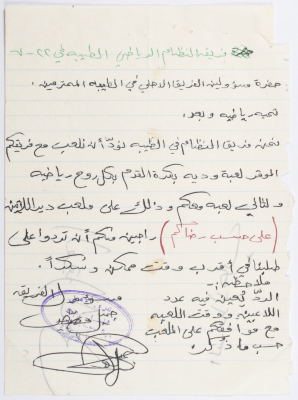 فريق النظام الرياضي الطيبه في ٢٢-٧
حضرة مسؤولين الفريق الاهلي في الطيبه المحترمين.
تحيه رياضيه وبعد.
نحن فريق النظام في الطيبه نودّ أن نلعب مع فريقكم
الموقر لعبة وديه بكرة القدم بكل روح رياضيه
لعبه معكم وذالك على ملعب دير اللاتين
(على حسب رضاكم) راجيين منكم أن تردوا على
طلبنا في أقرب وقت ممكن وشكراً.
ملاحظه:-
الردّ يحين فيه عدد
اللاعبين ووقت اللعبه
مع موافقكم على الملعب
حسب ما ذكر.
مسؤول الفريق